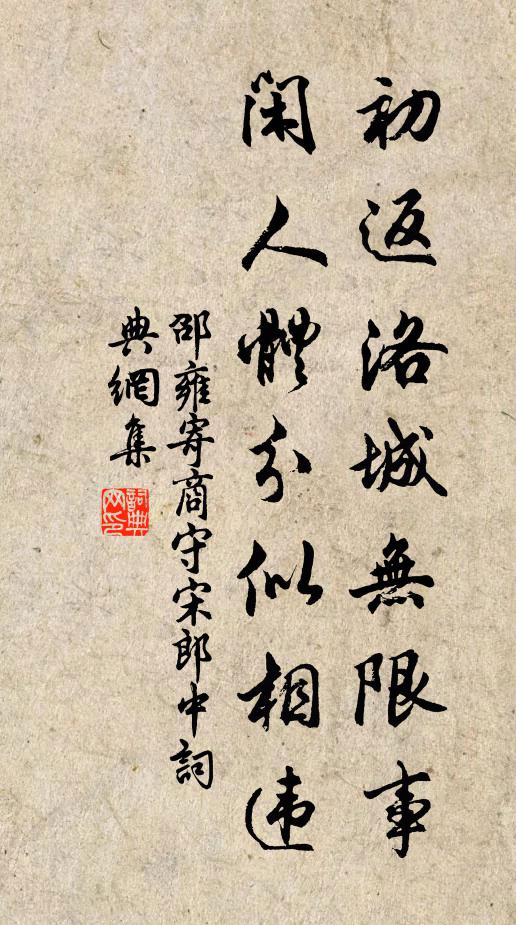 初返洛城無限事
閑人體分似相违
邵雍寄商守宋郎中詞
典網集
詞典网印